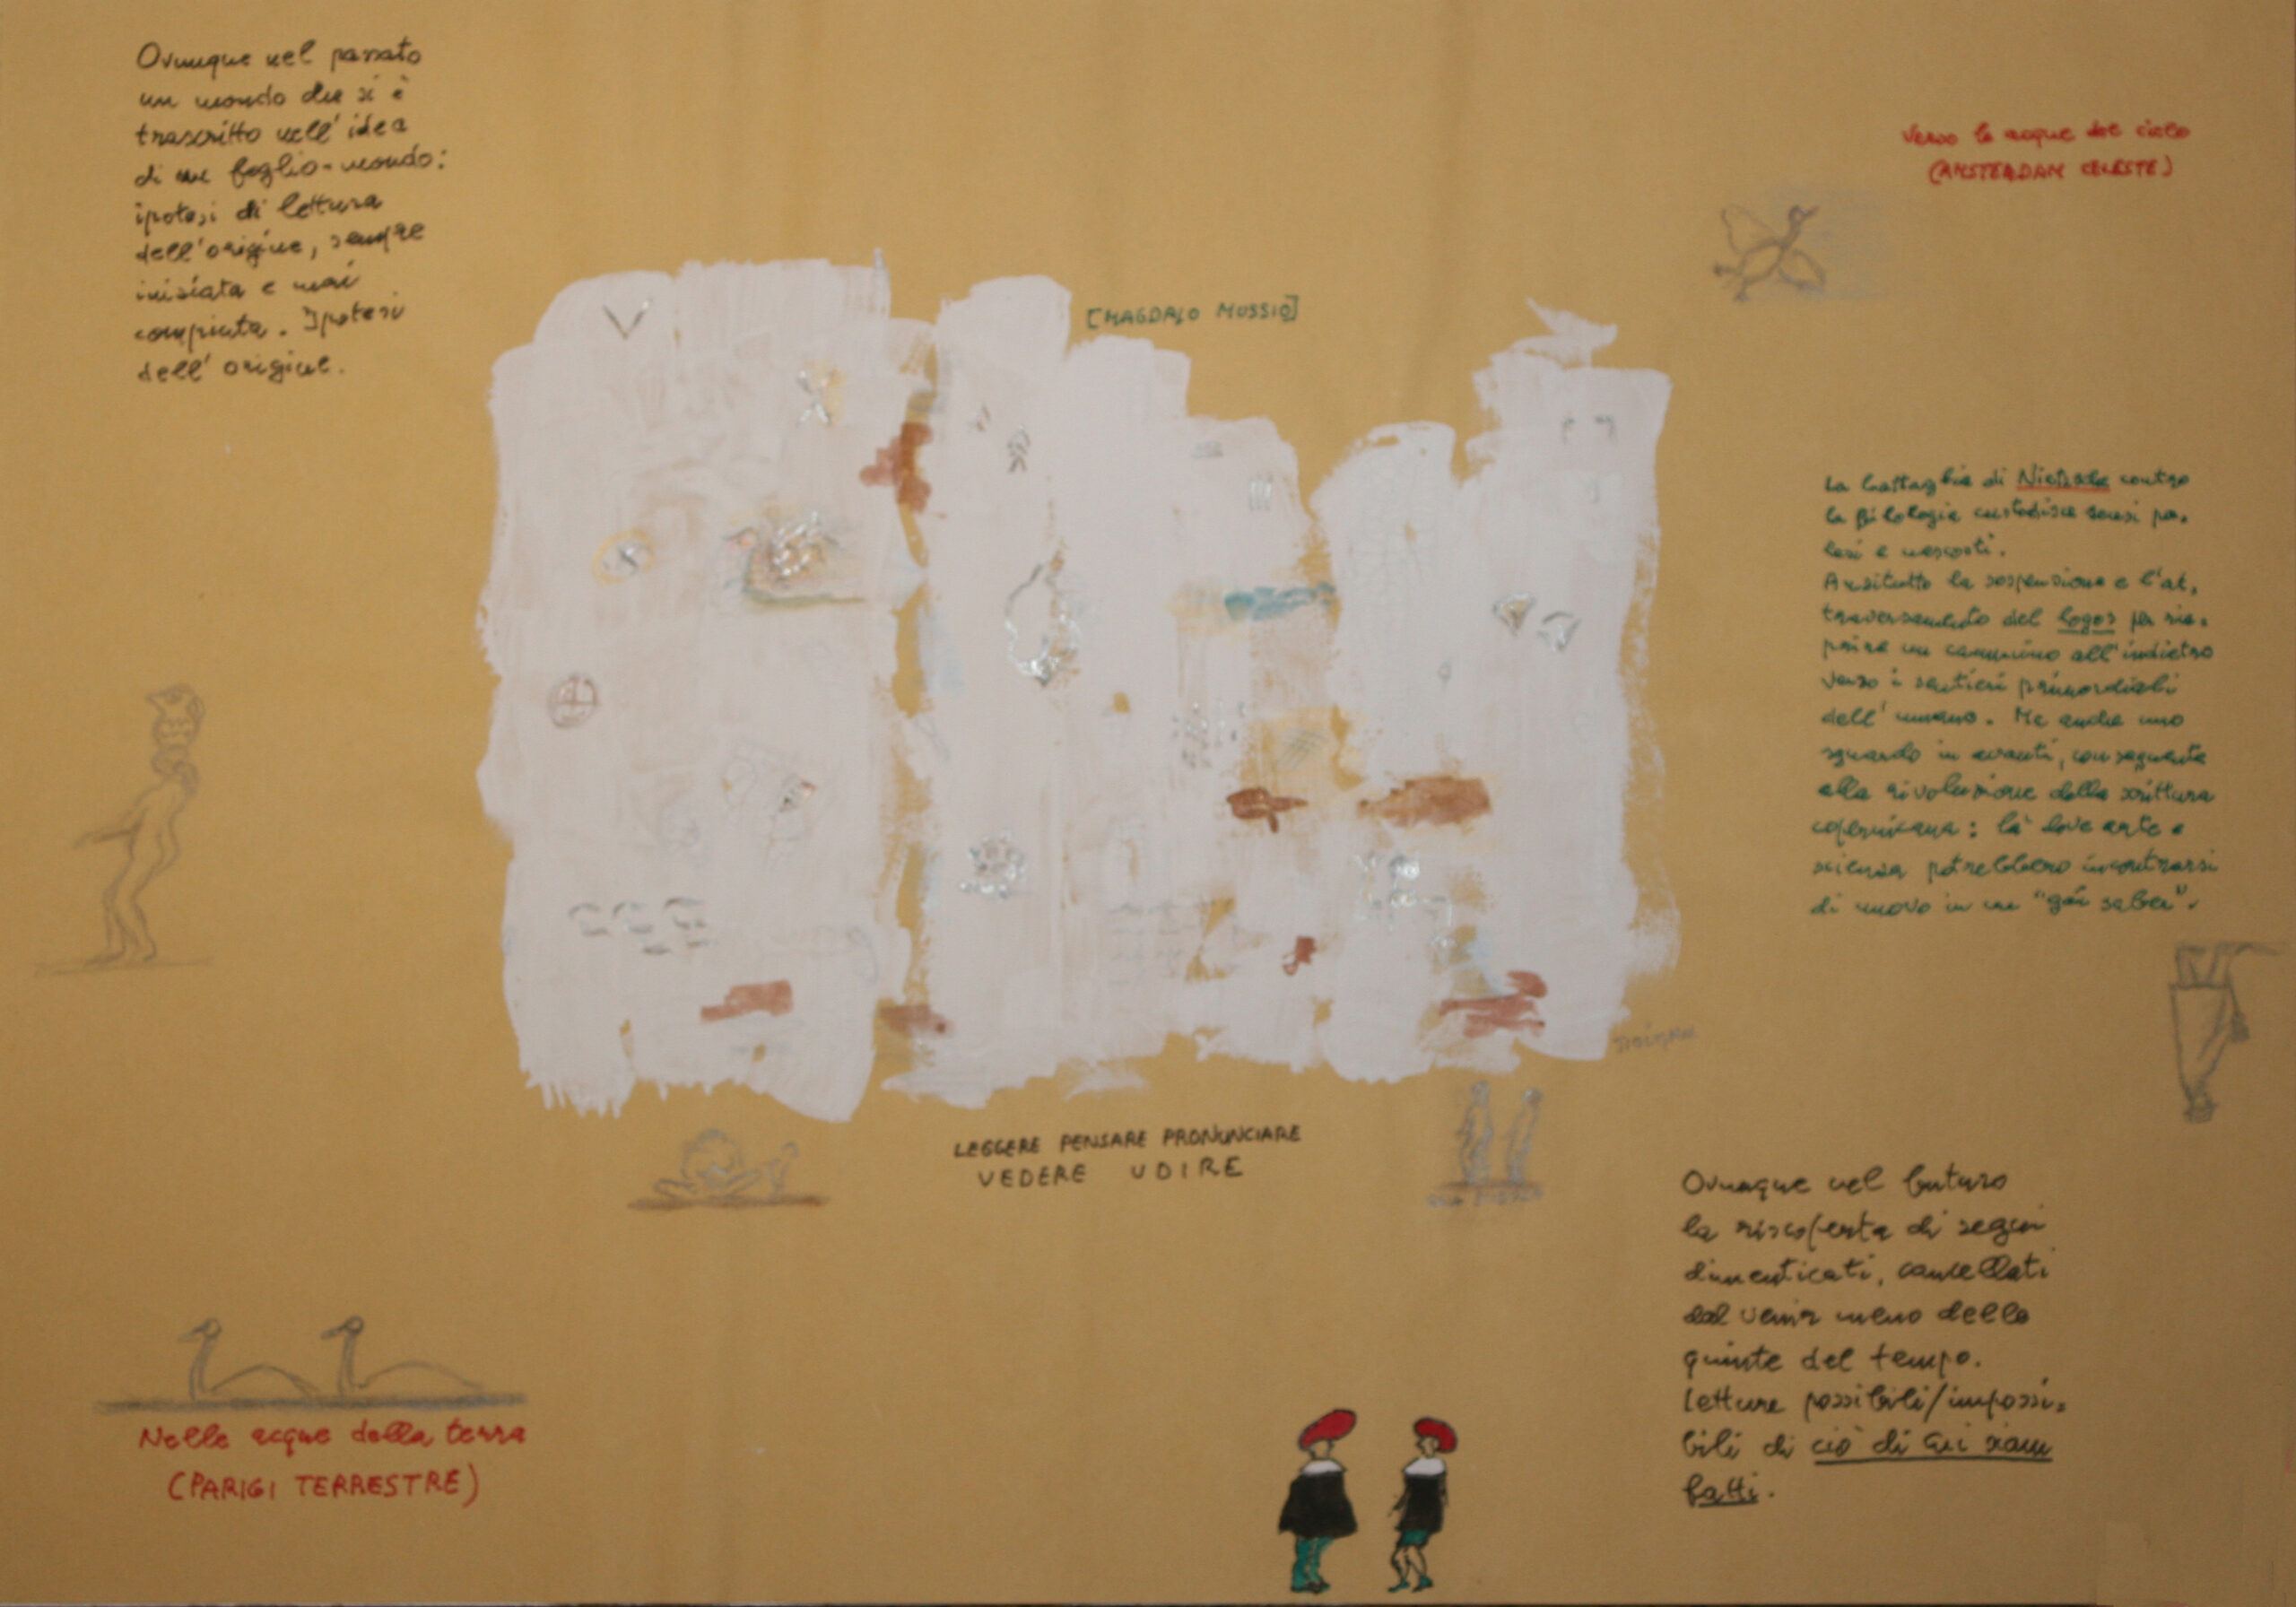 Ovunque nel passato
un mondo che si è
trascritto nell'idea
di un foglio-mondo:
ipotesi di lettura
dell'origine, sempre
iniziata e mai
compiuta. Ipotesi
dell'origine.
verso le acque del cielo
(AMSTERDAM CELESTE)
[MAGDALO MUSSIO]
La battaglia di Nietzsche contro
la filologia custodisce sensi pa-
lesi e nascosti.
Anzitutto la sospensione e l'at-
traversamento del logos per ria-
prire un cammino all'indietro
verso i sentieri primordiali
dell'umano. Ma anche uno
sguardo in avanti, conseguente
alla rivoluzione della scrittura
copernicana: là dove arte e
scienza potrebbero incontrarsi
di nuovo in un "gai saber".
LEGGERE PENSARE PRONUNCIARE
VEDERE UDIRE
Ovunque nel futuro
la riscoperta di segni
dimenticati, cancellati
dal venir meno delle
quinte del tempo.
Letture possibili/impossi-
bili di ciò di cui siam
fatti.
Nelle acque della terra
(PARIGI TERRESTRE)